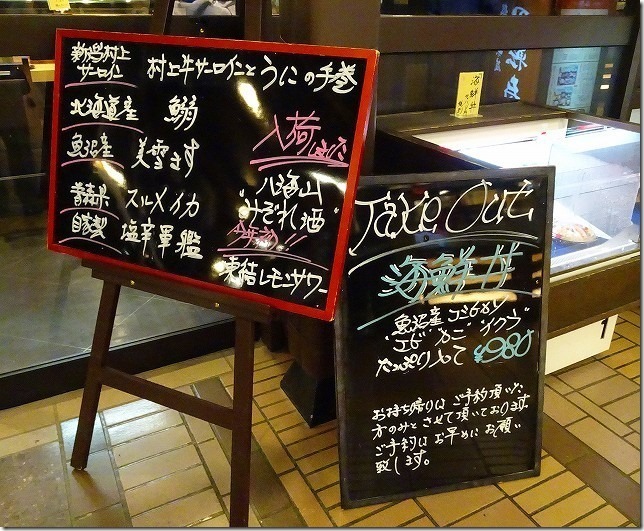 新潟村上
サーロイン
村上牛サーロインとうにの手巻
北海道産 鰤
入荷しました
魚沼産 美雪ます
"八海山
みぞれ酒"
青森県 スルメイカ
自家製 塩辛
凍結レモンサワー
Take Out
海鮮丼
"魚沼産コシヒカリ"
"エビ" "カニ" "イクラ"
たっぷり入って ¥980
お持ち帰りは ご予約頂いた
方のみとさせて頂いております。
ご予約は お早めに お願い
致します。
海鮮丼
1